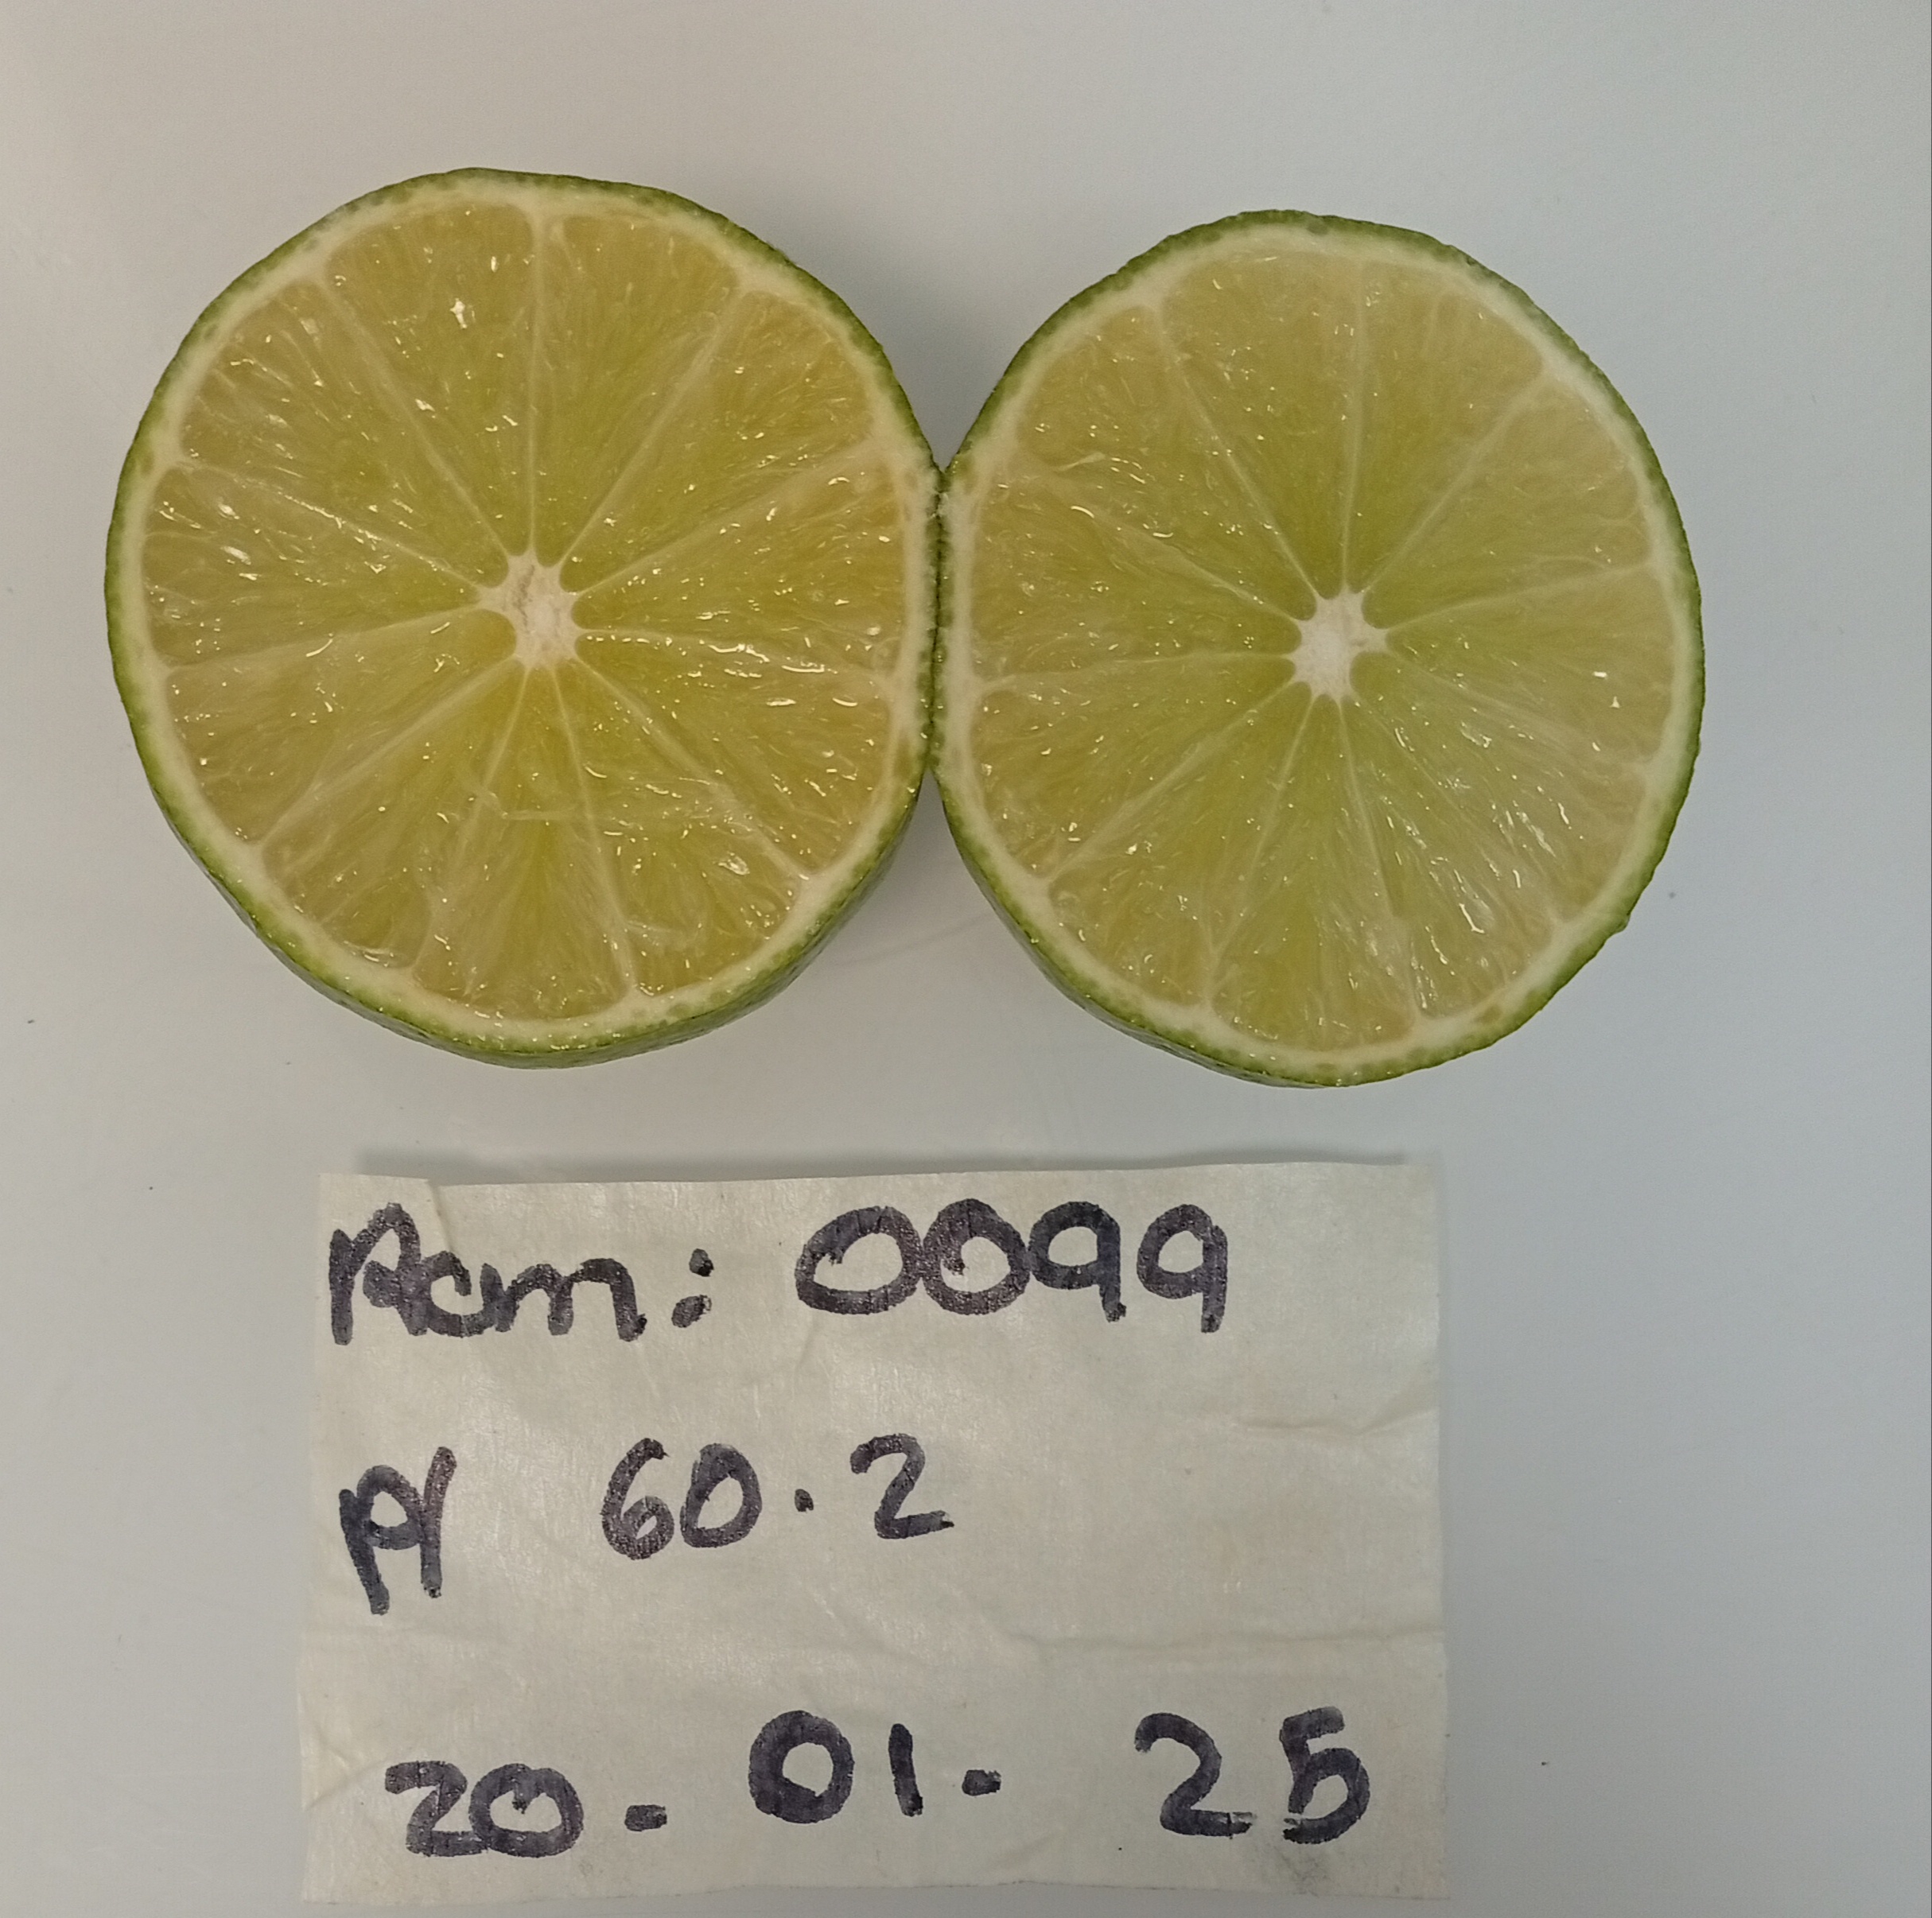 Acm: 0099
A 60.2
20.01.25